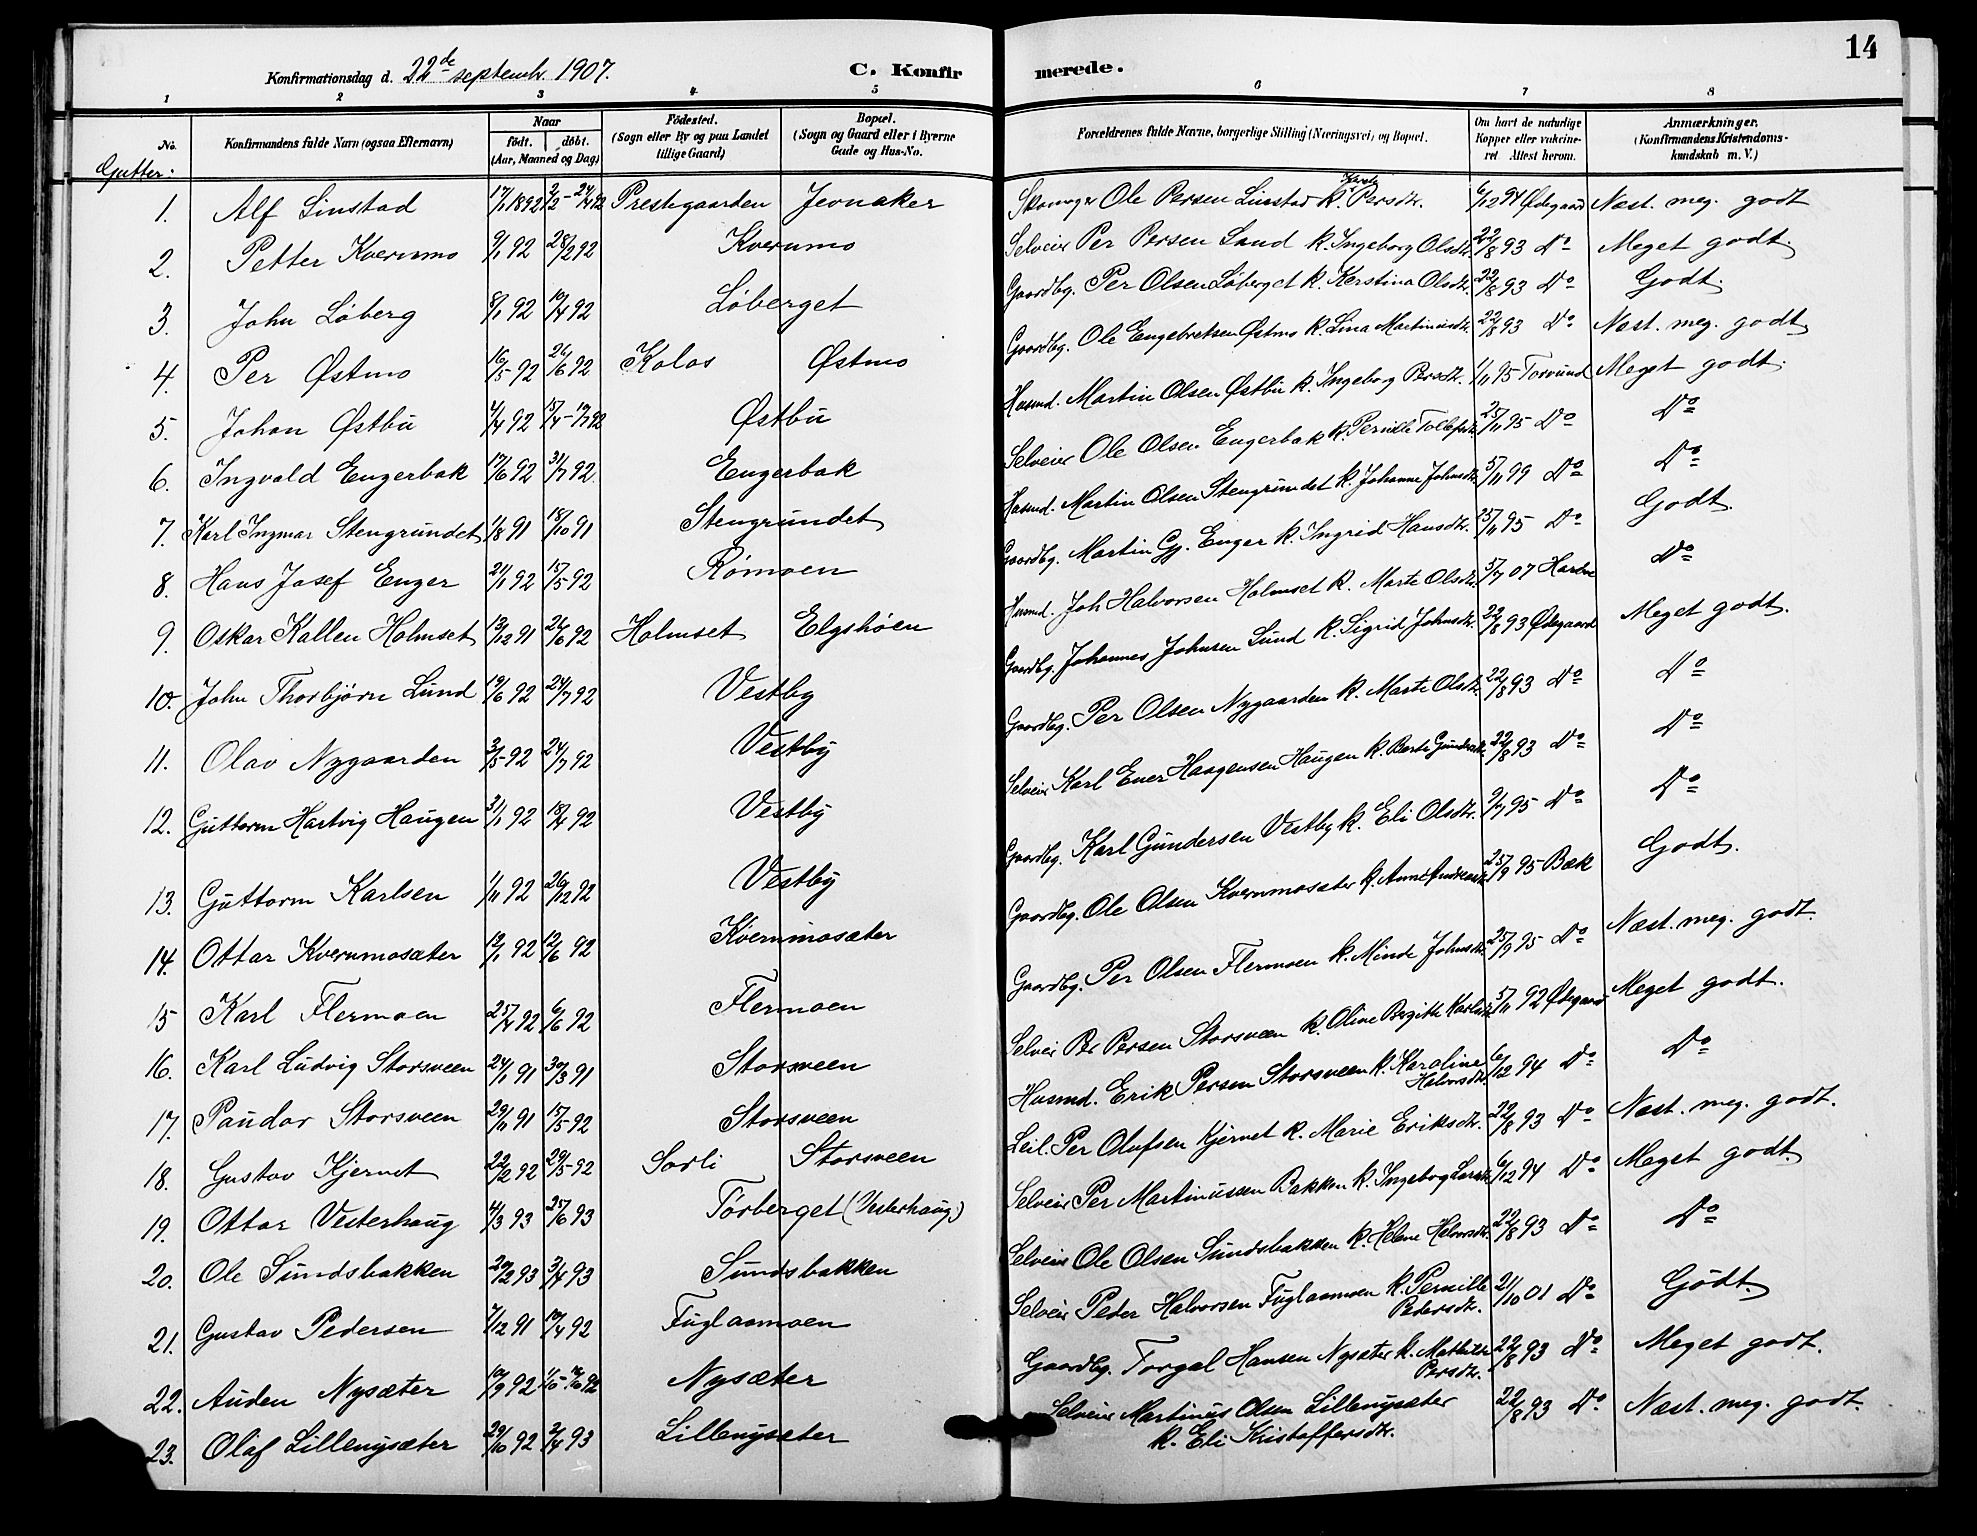 14
Konfirmationsdag d. 22de septembr. 1907. C. Konfirmerede.
1 2 3 4 5 6 7 8
No. Konfirmandens fulde Navn (ogsaa Efternavn) Naar født. døbt. (Aar, Maaned og Dag) Fødested. (Sogn eller By og paa Landet tillige Gaard) Bopæl. (Sogn og Gaard eller i Byerne Gade og Hus-No. Forældrenes fulde Navne, borgerlige Stilling (Næringsvei) og Bopæl. Om havt de naturlige Kopper eller vakcineret. Attest herom. Anmærkninger. (Konfirmandens Kristendomskundskab m. V.)
Gutter:
1. Alf Linstad 17/1 1892 Prestegaarden Jevnaker Skomager Ole Persen Linstad k. Persdtr. 6/12 94 Ødegaard Næst. meg. godt
2. Petter Kvernmo 9/1 92 28/2 92 Kvernmo Selveier Per Persen Lund k. Ingeborg Olsdtr. 22/8 93 Do Meget godt.
3. John Løberg 8/1 92 10/4 92 Løberget Gaardbg. Per Olsen Løberget k. Kerstina Olsdtr. 22/8 93 Do Godt.
4. Per Østmo 16/5 92 26/6 92 Kolos Østmo Gaardbg. Ole Engebretsen Østmo k. Lina Martinusdtr. 22/8 93 Do Næst. meg. godt
5. Johan Østbu 4/4 92 15/4 - 17/7 92 Østbu Husmd. Martin Olsen Østbu k. Ingeborg Persdtr. 1/11 95 Torvund Meget godt.
6. Ingvald Engerbak 17/6 92 31/7 92. Engerbak Selveier Ole Olsen Engerbak k. Pernille Tollefsdtr. 25/11 95 Do Do
7. Karl Ingmar Stengrundet 1/8 91 18/10 91 Stengrundet Husmd. Martin Olsen Stengrundet k. Johanne Johnsdtr. 5/11 99 Do Do
8. Hans Josef Enger 21/1 92 15/5 92 Rømoen Gaardbg. Martin Gj. Enger k. Ingrid Hansdtr. 25/11 95 Do Godt.
9. Oskar Kallen Holmset 13/12 91 26/6 92 Holmset Elgshøen Husmd. Joh Halvorsen Holmset k. Marte Olsdtr. 5/7 07 Do
10. John Thorbjørn Lund 19/6 92 24/7 92 Vestby Gaardbg. Johannes Johnsen Lund k. Sigrid Johnsdtr. 22/8 93 Ødegaard Meget godt.
11. Olav Nygaarden 3/5 92 24/7 92 Vestby Gaardbg. Per Olsen Nygaarden k. Marte Olsdtr. 22/8 93 Do Do
12. Guttorm Hartvig Haugen 31/1 92 18/4 92 Vestby Selveier Karl Ener Haagensen Haugen k. Berte Gundersdtr. 22/8 93 Do Do
13. Guttorm Karlsen 1/11 92 26/12 92 Vestby Gaardbg. Karl Gundersen Vestby k. Eli Olsdtr. 9/7 95 Do Do
14. Ottar Kvernmosæter 12/1 92 12/6 92 Kvernmosæter Gaardbg. Ole Olsen Kvernmosæter k. Anne Andreasdtr. 25/9 95 Bæk Godt.
15 Karl Flermoen 25/4 92 6/6 92 Flermoen Gaardbg. Per Olsen Flermoen k. Minda Johnsdtr. 25/9 95 Do Næst. meg. godt.
16. Karl Ludvig Storsveen 24/1 91 30/3 91 Storsveen Selveir Per Persen Storsveen k. Oline Birgitte Karlsdtr. 5/11 92 Ødegaard Meget godt.
17. Paudor Storsveen 29/11 91 15/5 92 Storsveen Husmd. Erik Persen Storsveen k. Karoline Halvorsdtr. 6/12 94 Do Do
18. Gustav Kjernet 22/2 92 29/5 92 Sorli Storsveen Leil. Per Olufsen Kjernet k. Marie Eriksdtr. 22/8 93 Do Næst. meg. godt.
19. Ottar Vesterhaug 4/3 93 25/6 93 Tørberget (Vesterhaug) Selveier Per Martinussen Bakken k. Ingeborg Larsdtr. 6/12 94 Do Meget godt.
20. Ole Sundsbakken 20/2 93 3/4 93 Sundsbakken Selveier Ole Olsen Sundsbakken k. Helene Halvorsdtr. 22/8 93 Do Do
21. Gustav Pedersen 7/12 91 10/4 92 Fuglaamoen Selveier Peder Halvorsen Fuglaamoen k. Pernille Pedersdtr. 21/10 01 Do Godt.
22. Auden Nysæter 10/9 92 Nysæter Gaardbg. Torgal Hansen Nysæter k. Mathilde Persdtr. 22/8 93 Do Meget godt.
23. Olaf Lillenysæter 29/10 92 3/4 93 Lillenysæter Selveier Martinus Olsen Lillenysæter k. Eli Kristoffersdtr. 22/8 93 Do Næst. meg. godt.